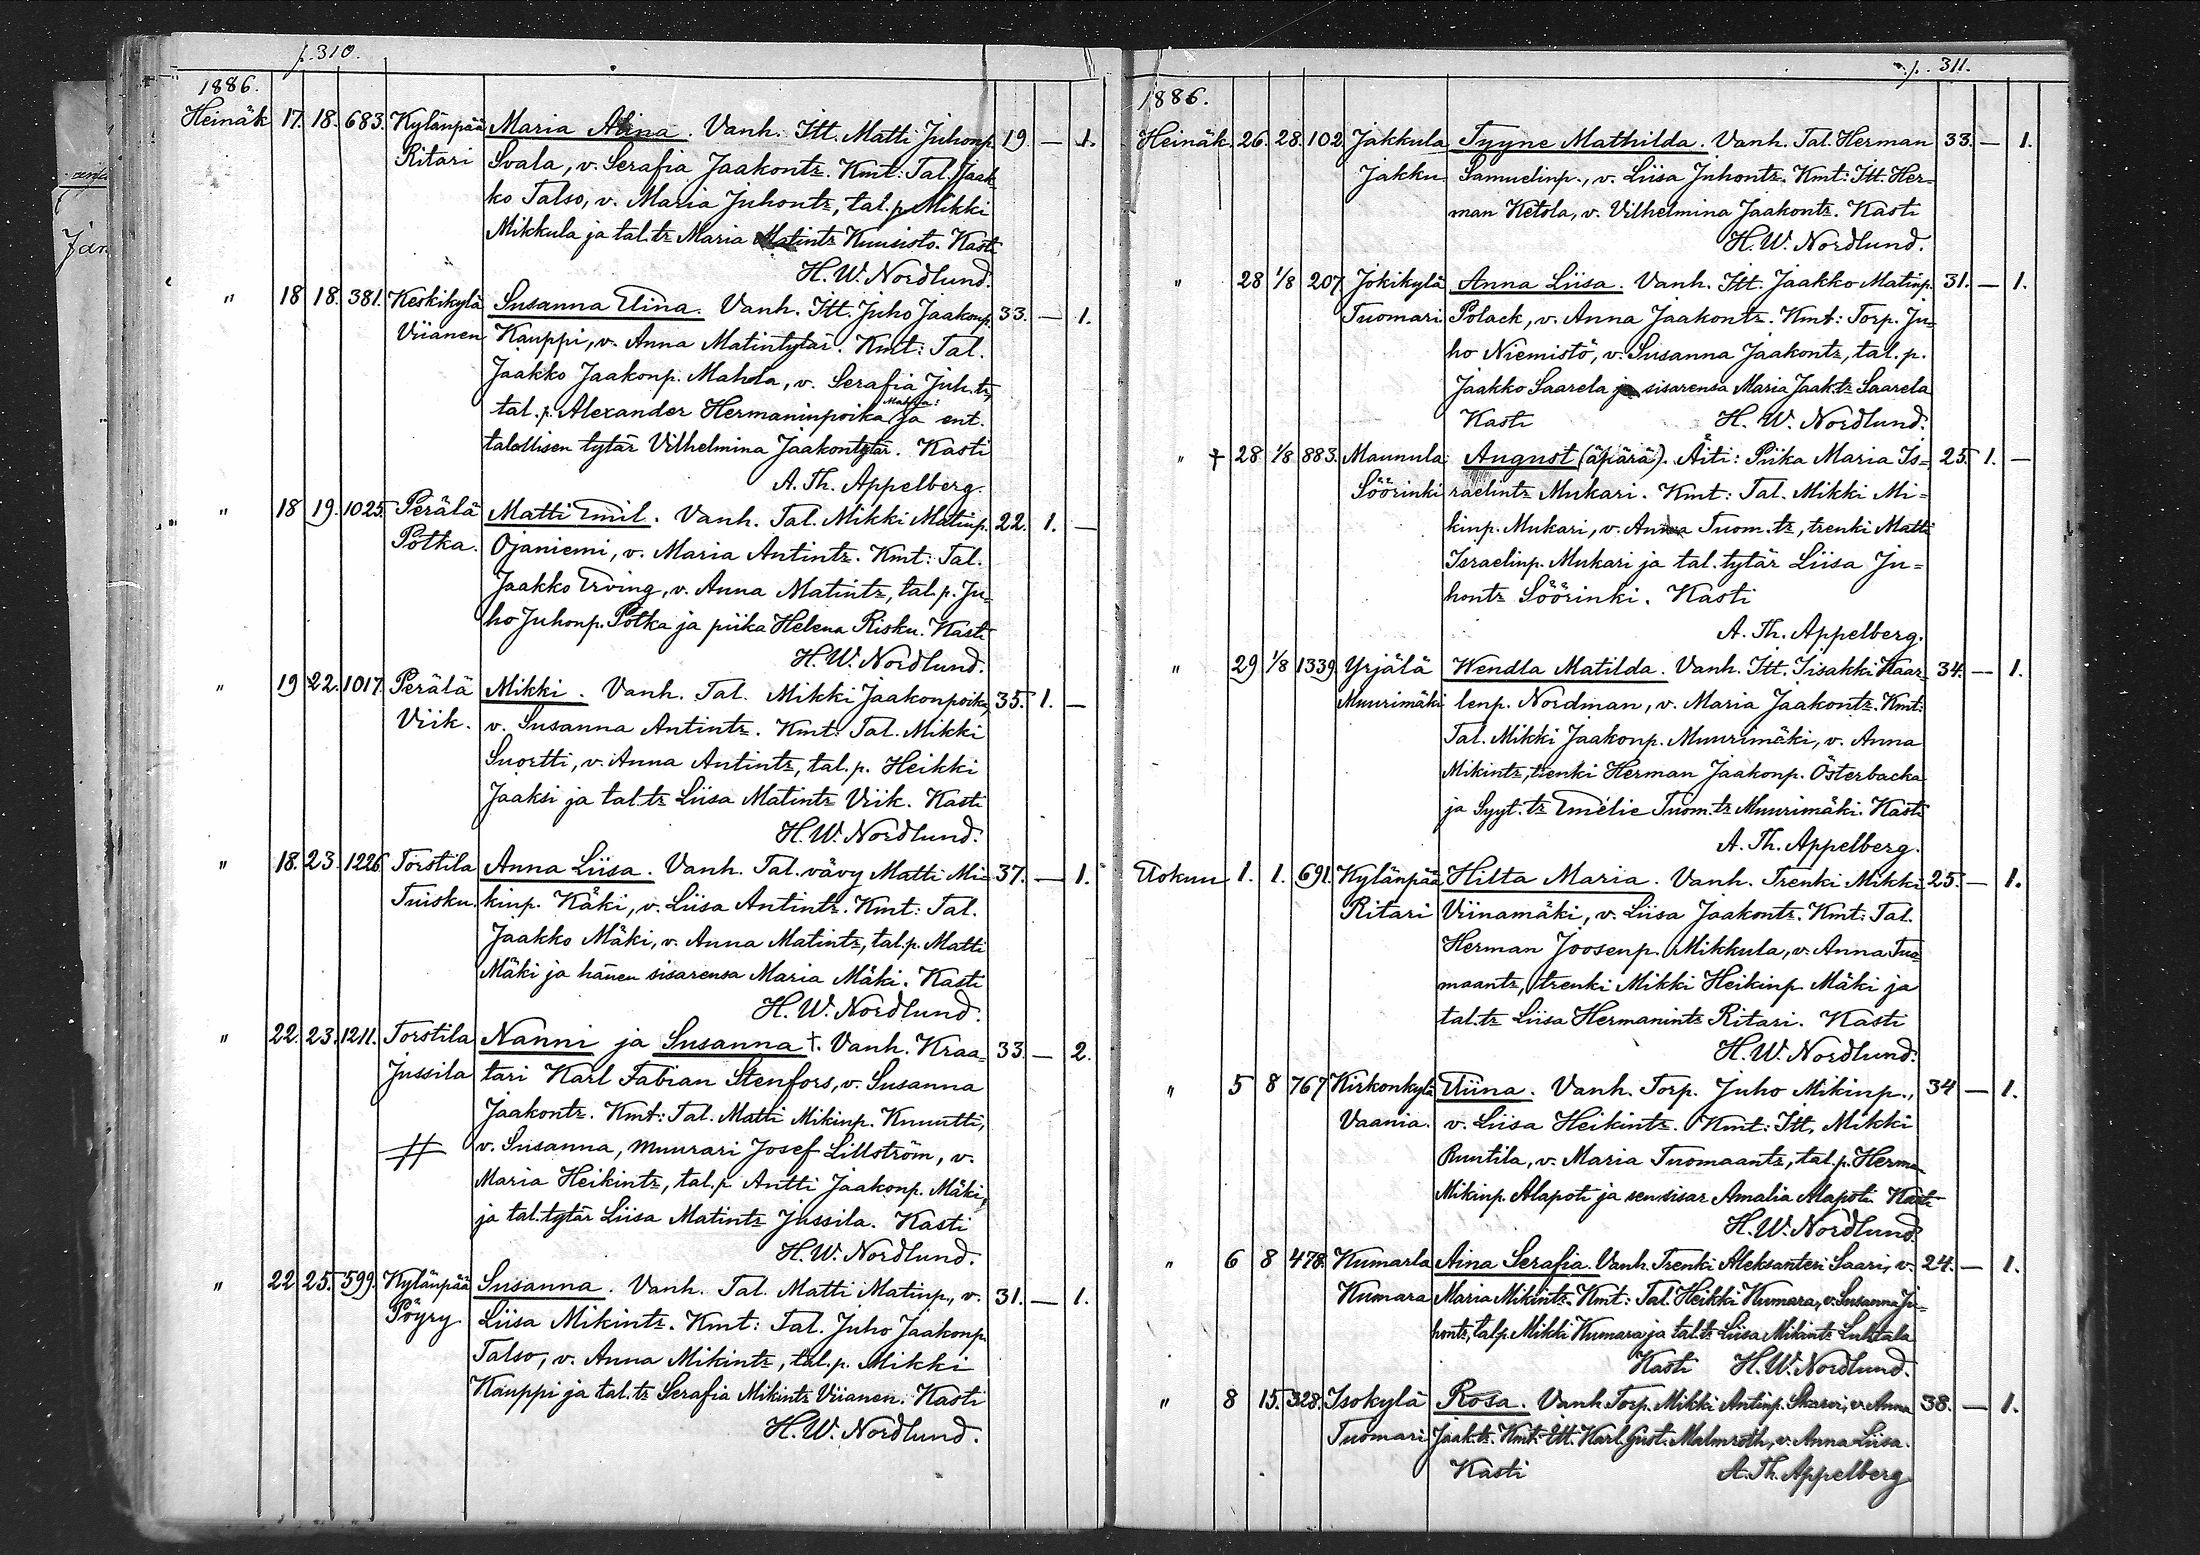 p. 310.
1886.
Heinäk 17. 18. 683. Kylänpää Maria Alina. Vanh. Itt. Matti Juhonp. 19 — 1.
Ritari Svala, v. Serafia Jaakontr. Kmt: Tal. Jaak-
ko Talso, v. Maria Juhontr, tal. p. Mikki
Mikkula ja tal. tr Maria Matintr Kuusisto. Kasti
H. W. Nordlund.
" 18 18. 381. Keskikylä Susanna Aina. Vanh. Itt. Juho Jaakonp. 33. — 1.
Viianen Kauppi, v. Anna Matintytär. Kmt: Tal.
Jaakko Jaakonp. Mahola, v. Serafia Juh. tr,
tal. p. Alexander Hermaninpoika ja ent.
talollisen tytär Vilhelmina Jaakontytär. Kasti
A. Th. Appelberg.
" 18 19. 1025. Perälä Matti Emil. Vanh. Tal. Mikki Matinp. 22. 1. —
Potka. Ojaniemi, v. Maria Antintr. Kmt: Tal.
Jaakko Erving, v. Anna Matintr, tal. p. Ju-
ho Juhonp. Potka ja piika Helena Risku. Kasti
H. W. Nordlund.
" 19 22. 1017. Perälä Mikki. Vanh. Tal. Mikki Jaakonpoika, 35. 1. —
Viik. v. Susanna Antintr. Kmt: Tal. Mikki
Suortti, v. Anna Antintr, tal. p. Heikki
Jaaksi ja tal. tr Liisa Matintr Viik. Kasti
H. W. Nordlund.
" 18. 23. 1226. Torstila Anna Liisa. Vanh. Tal. vävy Matti Mi- 37. — 1.
Tuisku. kinp. Käki, v. Liisa Antintr. Kmt: Tal.
Jaakko Mäki, v. Anna Matintr, tal. p. Matti
Mäki ja hänen sisarensa Maria Mäki. Kasti
H. W. Nordlund.
" 22. 23. 1211. Torstila Nanni ja Susanna †. Vanh. Kraa- 33. — 2.
Jussila tari Karl Fabian Stenfors, v. Susanna
Jaakontr. Kmt: Tal. Matti Mikinp. Knuutti,
# v. Susanna, muurari Josef Lillström, v.
Maria Heikintr, tal. p. Antti Jaakonp. Mäki,
ja tal. tytär Liisa Matintr Jussila. Kasti
H. W. Nordlund.
" 22 25. 599. Kylänpää Susanna. Vanh. Tal. Matti Matinp., v. 31. — 1.
Pöyry. Liisa Mikintr. Kmt: Tal. Juho Jaakonp.
Talso, v. Anna Mikintr, tal. p. Mikki
Kauppi ja tal. tr Serafia Mikintr Viianen. Kasti
H. W. Nordlund.
p. 311.
1886.
Heinäk. 26. 28. 102. Jakkula Tyyne Mathilda. Vanh. Tal. Herman 33. — 1.
Jakku Samuelinp., v. Liisa Juhontr. Kmt: Itt. Her-
man Ketola, v. Vilhelmina Jaakontr. Kasti
H. W. Nordlund.
" 28 1/8 207. Jokikylä Anna Liisa. Vanh. Itt. Jaakko Matinp. 31. — 1.
Tuomari. Polack, v. Anna Jaakontr. Kmt: Torp. Ju-
ho Niemistö, v. Susanna Jaakontr, tal. p.
Jaakko Saarela ja sisarensa Maria Jaak. tr Saarela
Kasti H. W. Nordlund.
" † 28. 1/8 883. Maunula August (äpärä). Äiti: Piika Maria Is- 25. 1. —
Söörinki raelintr Mukari. Kmt: Tal. Mikki Mi-
kinp. Mukari, v. Anna Tuom. tr, trenki Matti
Israelinp. Mukari ja tal. tytär Liisa Ju-
hontr Söörinki. Kasti
A. Th. Appelberg.
" 29 1/8 1339. Yrjälä Wendla Matilda. Vanh. Itt. Iisakki Kaar- 34. — 1.
Muurimäki lenp. Nordman, v. Maria Jaakontr. Kmt:
Tal. Mikki Jaakonp. Muurimäki, v. Anna
Mikintr, trenki Herman Jaakonp. Österbacka
ja Syyt. tr Emelie Tuom. tr Muurimäki. Kasti
A. Th. Appelberg.
Elokuu 1. 1. 691. Kylänpää Hilta Maria. Vanh. Trenki Mikki 25. — 1.
Ritari Viinamäki, v. Liisa Jaakontr. Kmt: Tal.
Herman Joosenp. Mikkula, v. Anna Tuo-
maantr, trenki Mikki Heikinp. Mäki ja
tal. tr Liisa Hermanintr Ritari. Kasti
H. W. Nordlund.
" 5 8 767 Kirkonkylä Eliina. Vanh. Torp. Juho Mikinp., 34 — 1.
Vaania. v. Liisa Heikintr. Kmt: Itt. Mikki
Ruutila, v. Maria Tuomaantr, tal. p. Herman
Mikinp. Alapoti ja sen sisar Amalia Alapoti. Kasti
H. W. Nordlund.
" 6 8 478. Kumarla Aina Serafia. Vanh. Trenki Aleksanteri Saari, v. 24. — 1.
Kumara Maria Mikintr. Kmt: Tal. Heikki Kumara, v. Susanna Ju-
hontr, tal. p. Mikki Kumara ja tal. tr Liisa Mikintr Luhtala
Kasti H. W. Nordlund.
" 8 15. 328. Isokylä Rosa. Vanh. Torp. Mikki Antinp. Skarvi, v. Anna 38. — 1.
Tuomari Jaak. tr. Kmt: Itt. Karl Gust. Malmroth, v. Anna Liisa.
Kasti A. Th. Appelberg